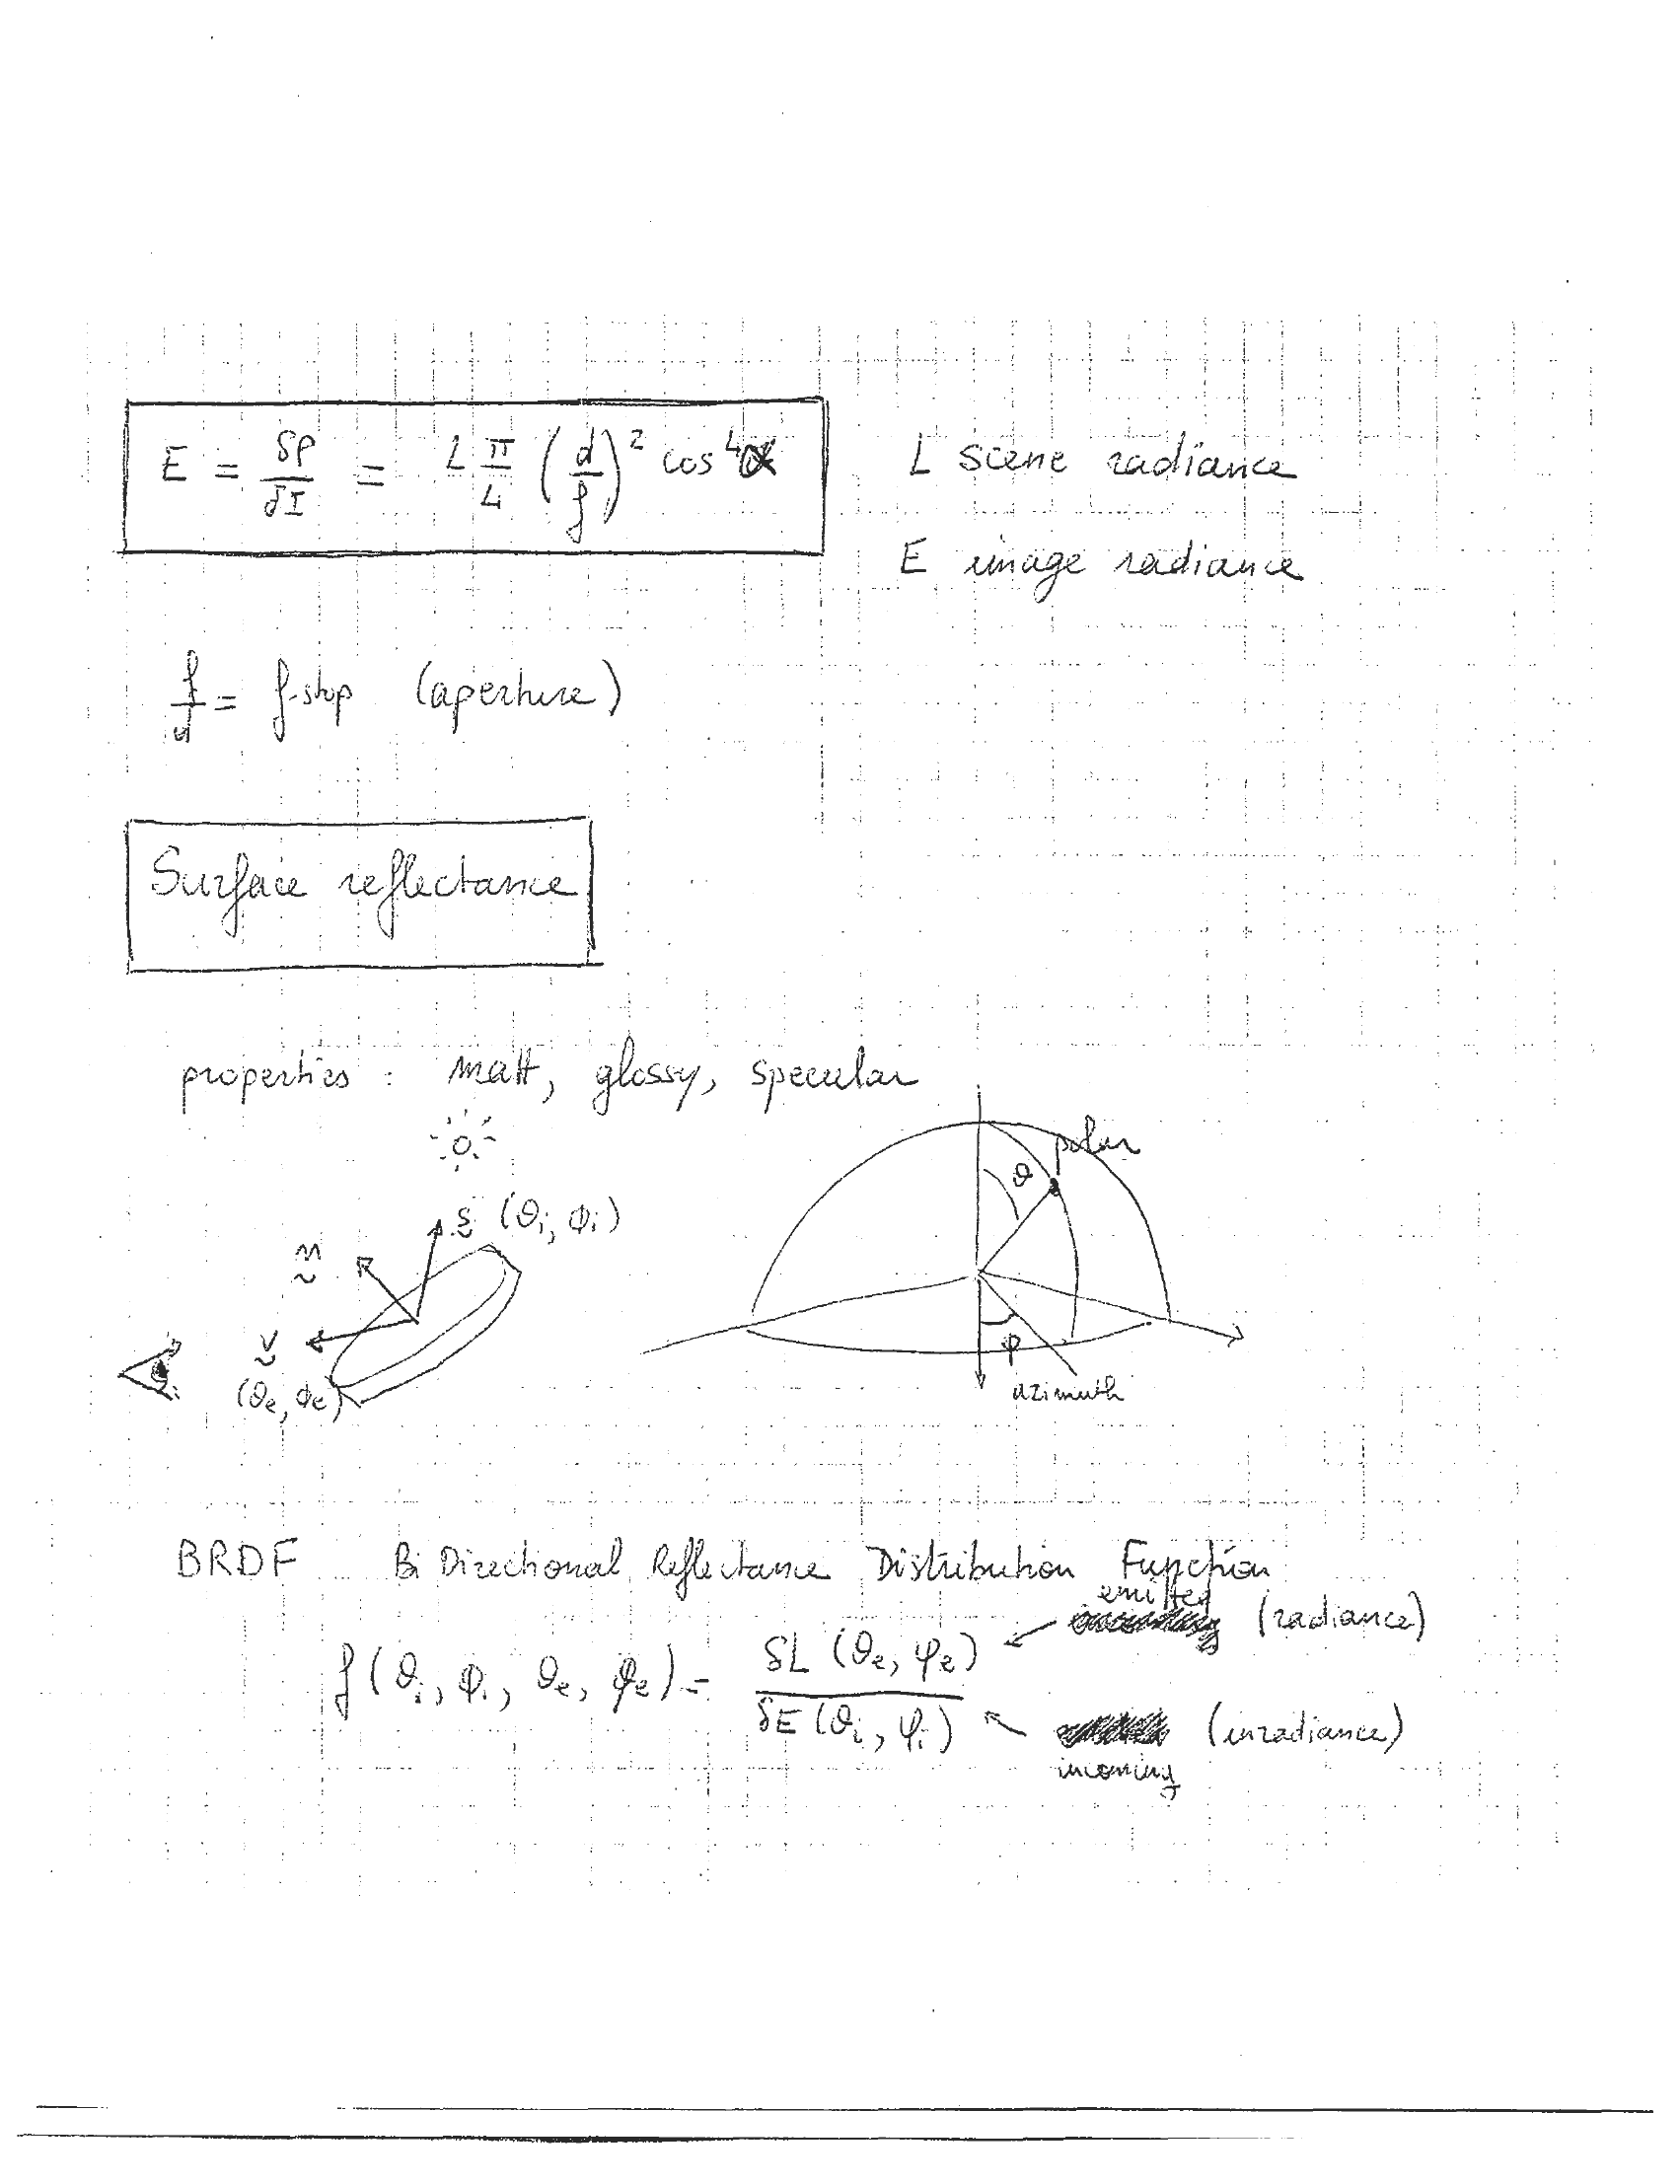 E = δP/δI = L π/4 (d/f)² cos⁴α
L scene radiance
E image radiance
f/d = f-stop (aperture)
Surface reflectance
properties : matt, glossy, specular
polar
θ
s (θi, φi)
n
v
(θe, φe)
φ
azimuth
BRDF Bi Directional Reflectance Distribution Function
emitted (radiance)
f(θi, φi, θe, φe) = δL (θe, φe) / δE (θi, φi)
(irradiance)
incoming